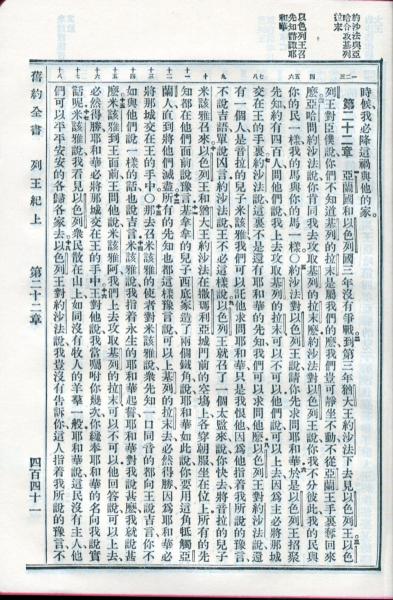 約沙法與亞
哈合攻基列
拉末
以色列王召
先知諮諏耶
和華
時候我必降這禍與他的家。
第二十二章 亞蘭國和以色列國三年沒有爭戰到第三年猶大王約沙法下去見以色列王以色
列王對臣僕說你們不知道基列的拉末是屬我們的麼我們豈可靜坐不動不從亞蘭王手裏奪回來
麼亞哈問約沙法說你肯同我去攻取基列的拉末麼約沙法對以色列王說你我不分彼此我的民與
你的民一樣我的馬與你的馬一樣○約沙法對以色列王說請你先求問耶和華於是以色列王招聚
先知約有四百人問他們說我上去攻取基列的拉末可以不可以他們說可以上去因爲主必將那城
交在王的手裏約沙法說這裏不是還有耶和華的先知我們可以求問他麼以色列王對約沙法說還
有一個人是音拉的兒子米該雅我們可以託他求問耶和華只是我恨他因爲他指着我所說的豫言
不說吉語單說凶言約沙法說王不必這樣說以色列王就召了一個太監來說你快去將音拉的兒子
米該雅召來以色列王和猶大王約沙法在撒瑪利亞城門前的空塲上各穿朝服坐在位上所有的先
知都在他們面前說豫言基拿拿的兒子西底家造了兩個鐵角說耶和華如此說你要用這角牴觸亞
蘭人直到將他們滅盡所有的先知也都這樣豫言說可以上基列的拉末去必然得勝因爲耶和華必
將那城交在王的手中○那去召米該雅的使者對米該雅說衆先知一口同音的都向王說吉言你不
如與他們說一樣的話也說吉言米該雅說我指着永生的耶和華起誓耶和華對我說甚麼我就說甚
麼米該雅到王面前王問他說米該雅阿我們上去攻取基列的拉末可以不可以他回答說可以上去
必然得勝耶和華必將那城交在王的手中王對他說我當囑咐你幾次你纔奉耶和華的名向我說實
話呢米該雅說我看見以色列衆民散在山上如同沒有牧人的羊羣一般耶和華說這民沒有主人他
們可以平平安安的各歸各家去以色列王對約沙法說我豈沒有告訴你這人指着我所說的豫言不
舊約全書 列王紀上 第二十二章 四百四十一